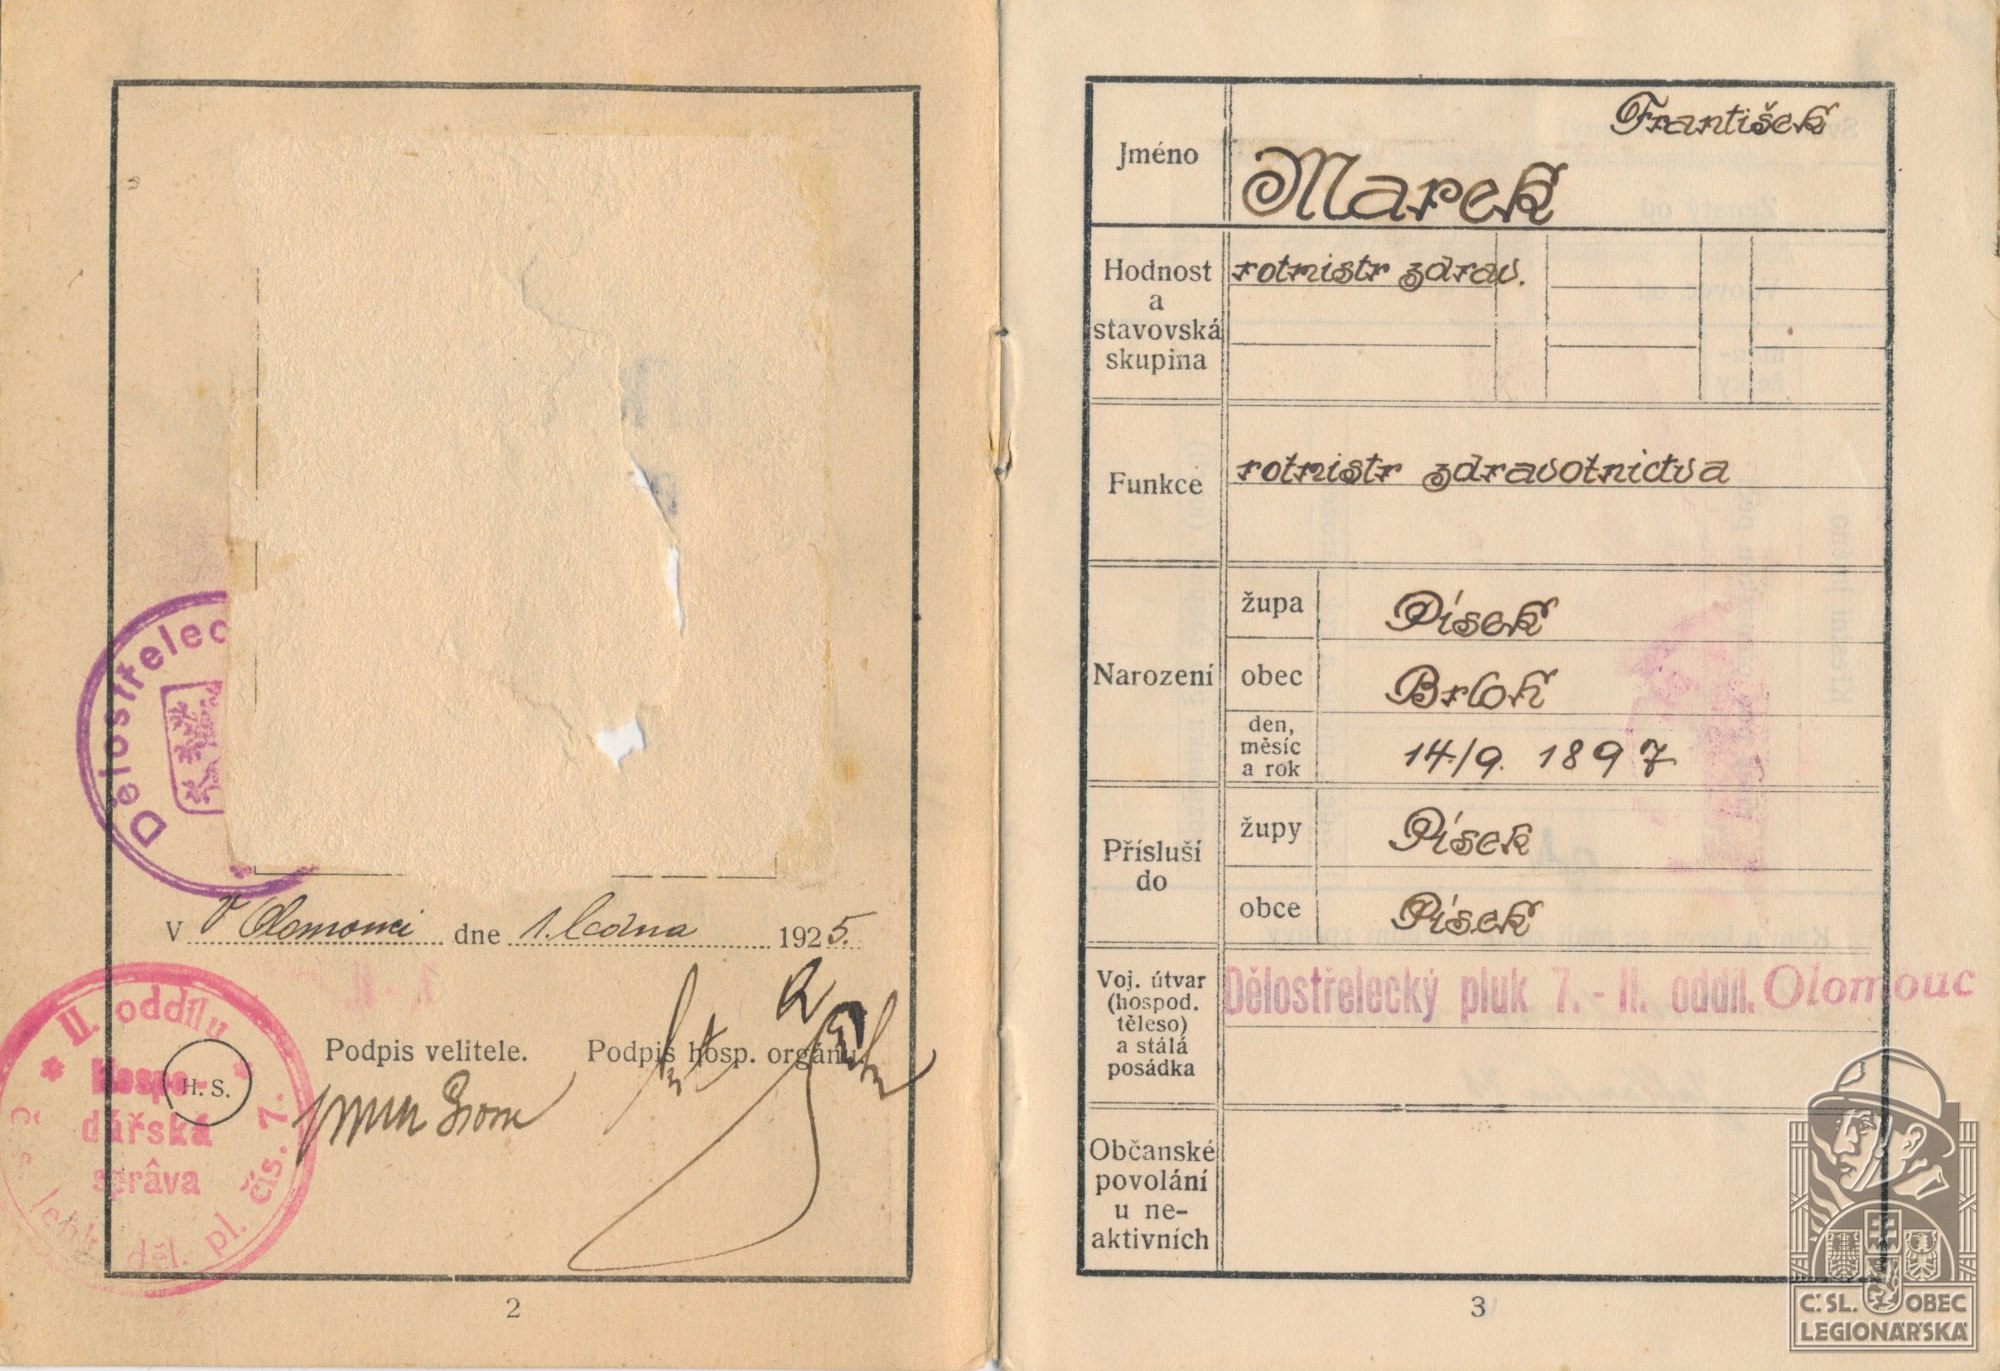 Dělostřelec
V V Olomouci dne 1. ledna 1925.
II. oddílu
Hospo-
dářská
správa
lehk. děl. pl. čís. 7.
H. S.
Podpis velitele. Podpis hosp. orgánu.
2
Jméno
František
Marek
Hodnost
a
stavovská
skupina
rotmistr zdrav.
Funkce
rotmistr zdravotnictva
Narození
župa
Písek
obec
Brloh
den,
měsíc
a rok
14./9. 1897
Přísluší
do
župy
Písek
obce
Písek
Voj. útvar
(hospod.
těleso)
a stálá
posádka
Dělostřelecký pluk 7. - II. oddíl. Olomouc
Občanské
povolání
u ne-
aktivních
3
Č. SL. OBEC
LEGIONÁŘSKÁ